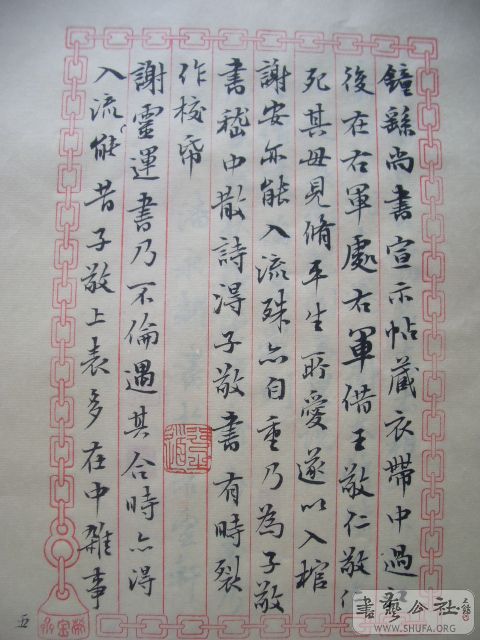 鐘繇尚書宣示帖藏衣帶中過
後在右軍處右軍借王敬仁敬仁
死其母見脩平生所愛遂以入棺
謝安亦能入流殊亦自重乃為子敬
書嵇中散詩得子敬書有時裂
作校帋
謝靈運書乃不倫遇其合時亦得
入流能昔子敬上表多在中雜事
五
書藝公社
WWW.SHUFA.ORG